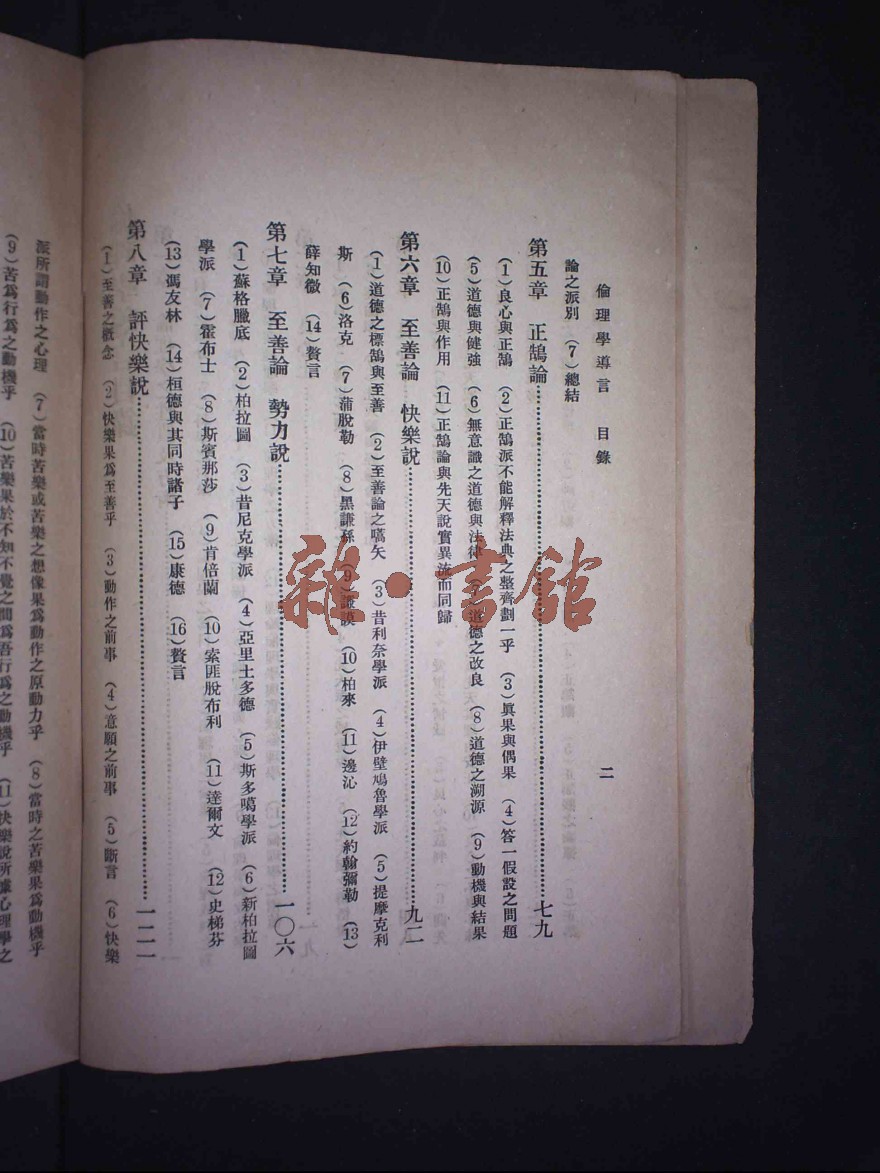 倫理學導言　目錄　二
論之派別　（7）總結
第五章　正鵠論……七九
（1）良心與正鵠　（2）正鵠派不能解釋法典之整齊劃一乎　（3）眞果與偶果　（4）答一假設之問題
（5）道德與健強　（6）無意識之道德與法律　（7）道德之改良　（8）道德之溯源　（9）動機與結果
（10）正鵠與作用　（11）正鵠論與先天說實異流而同歸
第六章　至善論　快樂說……九二
（1）道德之標鵠與至善　（2）至善論之嚆矢　（3）昔利奈學派　（4）伊壁鳩魯學派　（5）提摩克利
斯　（6）洛克　（7）蒲脫勒　（8）黑謙孫　（9）謙謨　（10）柏來　（11）邊沁　（12）約翰彌勒　（13）
薛知微　（14）贅言
第七章　至善論　勢力說……一〇六
（1）蘇格臘底　（2）柏拉圖　（3）昔尼克學派　（4）亞里士多德　（5）斯多噶學派　（6）新柏拉圖
學派　（7）霍布士　（8）斯賓那莎　（9）肯倍蘭　（10）索匪脫布利　（11）達爾文　（12）史梯芬
（13）馮友林　（14）桓德與其同時諸子　（15）康德　（16）贅言
第八章　評快樂說……一二一
（1）至善之概念　（2）快樂果爲至善乎　（3）動作之前事　（4）意願之前事　（5）斷言　（6）快樂
派所謂動作之心理　（7）當時苦樂或苦樂之想像果爲動作之原動力乎　（8）當時之苦樂果爲動機乎
（9）苦爲行爲之動機乎　（10）苦樂果於不知不覺之間爲吾行爲之動機乎　（11）快樂說所據心理學之
雜·書館